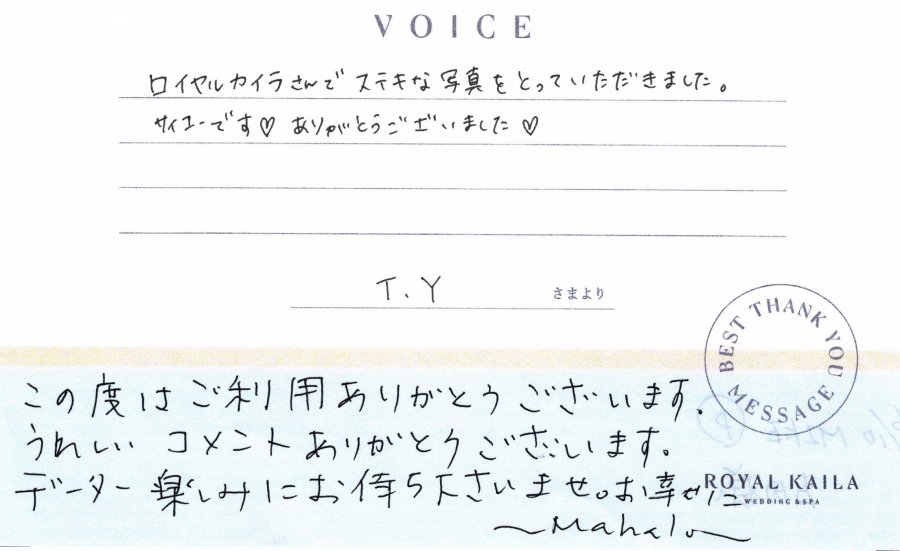 VOICE
ロイヤルカイラさんでステキな写真をとっていただきました。
サイコーです♡ ありがとうございました♡
T.Y さまより
BEST THANK YOU MESSAGE
この度はご利用ありがとうございます.
うれしいコメントありがとうございます。
データー楽しみにお待ち下さいませ。お幸せに
ROYAL KAILA
WEDDING & SPA
～Mahalo～